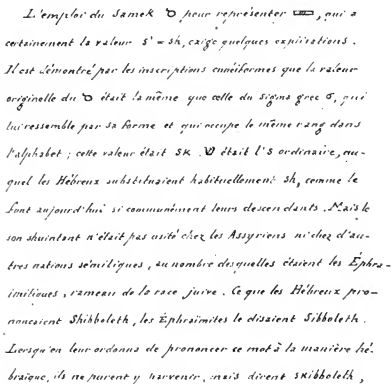 L'emploi du Samek ס pour représenter 𓈙, qui a
certainement la valeur s' = sh, exige quelques explications.
Il est démontré par les inscriptions cunéiformes que la valeur
originelle du ס était la même que celle du sigma grec σ, qui
lui ressemble par sa forme et qui occupe le même rang dans
l'alphabet ; cette valeur était SK. ש était l's ordinaire, au-
quel les Hébreux substituaient habituellement Sh, comme le
font aujourd'hui si communément leurs descendants. Mais le
son shuintant n'était pas usité chez les Assyriens ni chez d'au-
tres nations sémitiques, au nombre desquelles étaient les Éphra-
imitiques, rameau de la race juive. Ce que les Hébreux pro-
nonçaient Shibboleth, les Éphraïmites le disaient Sibboleth.
Lorsqu'on leur ordonna de prononcer ce mot à la manière hé-
braïque, ils ne purent y parvenir, mais dirent skibboleth,